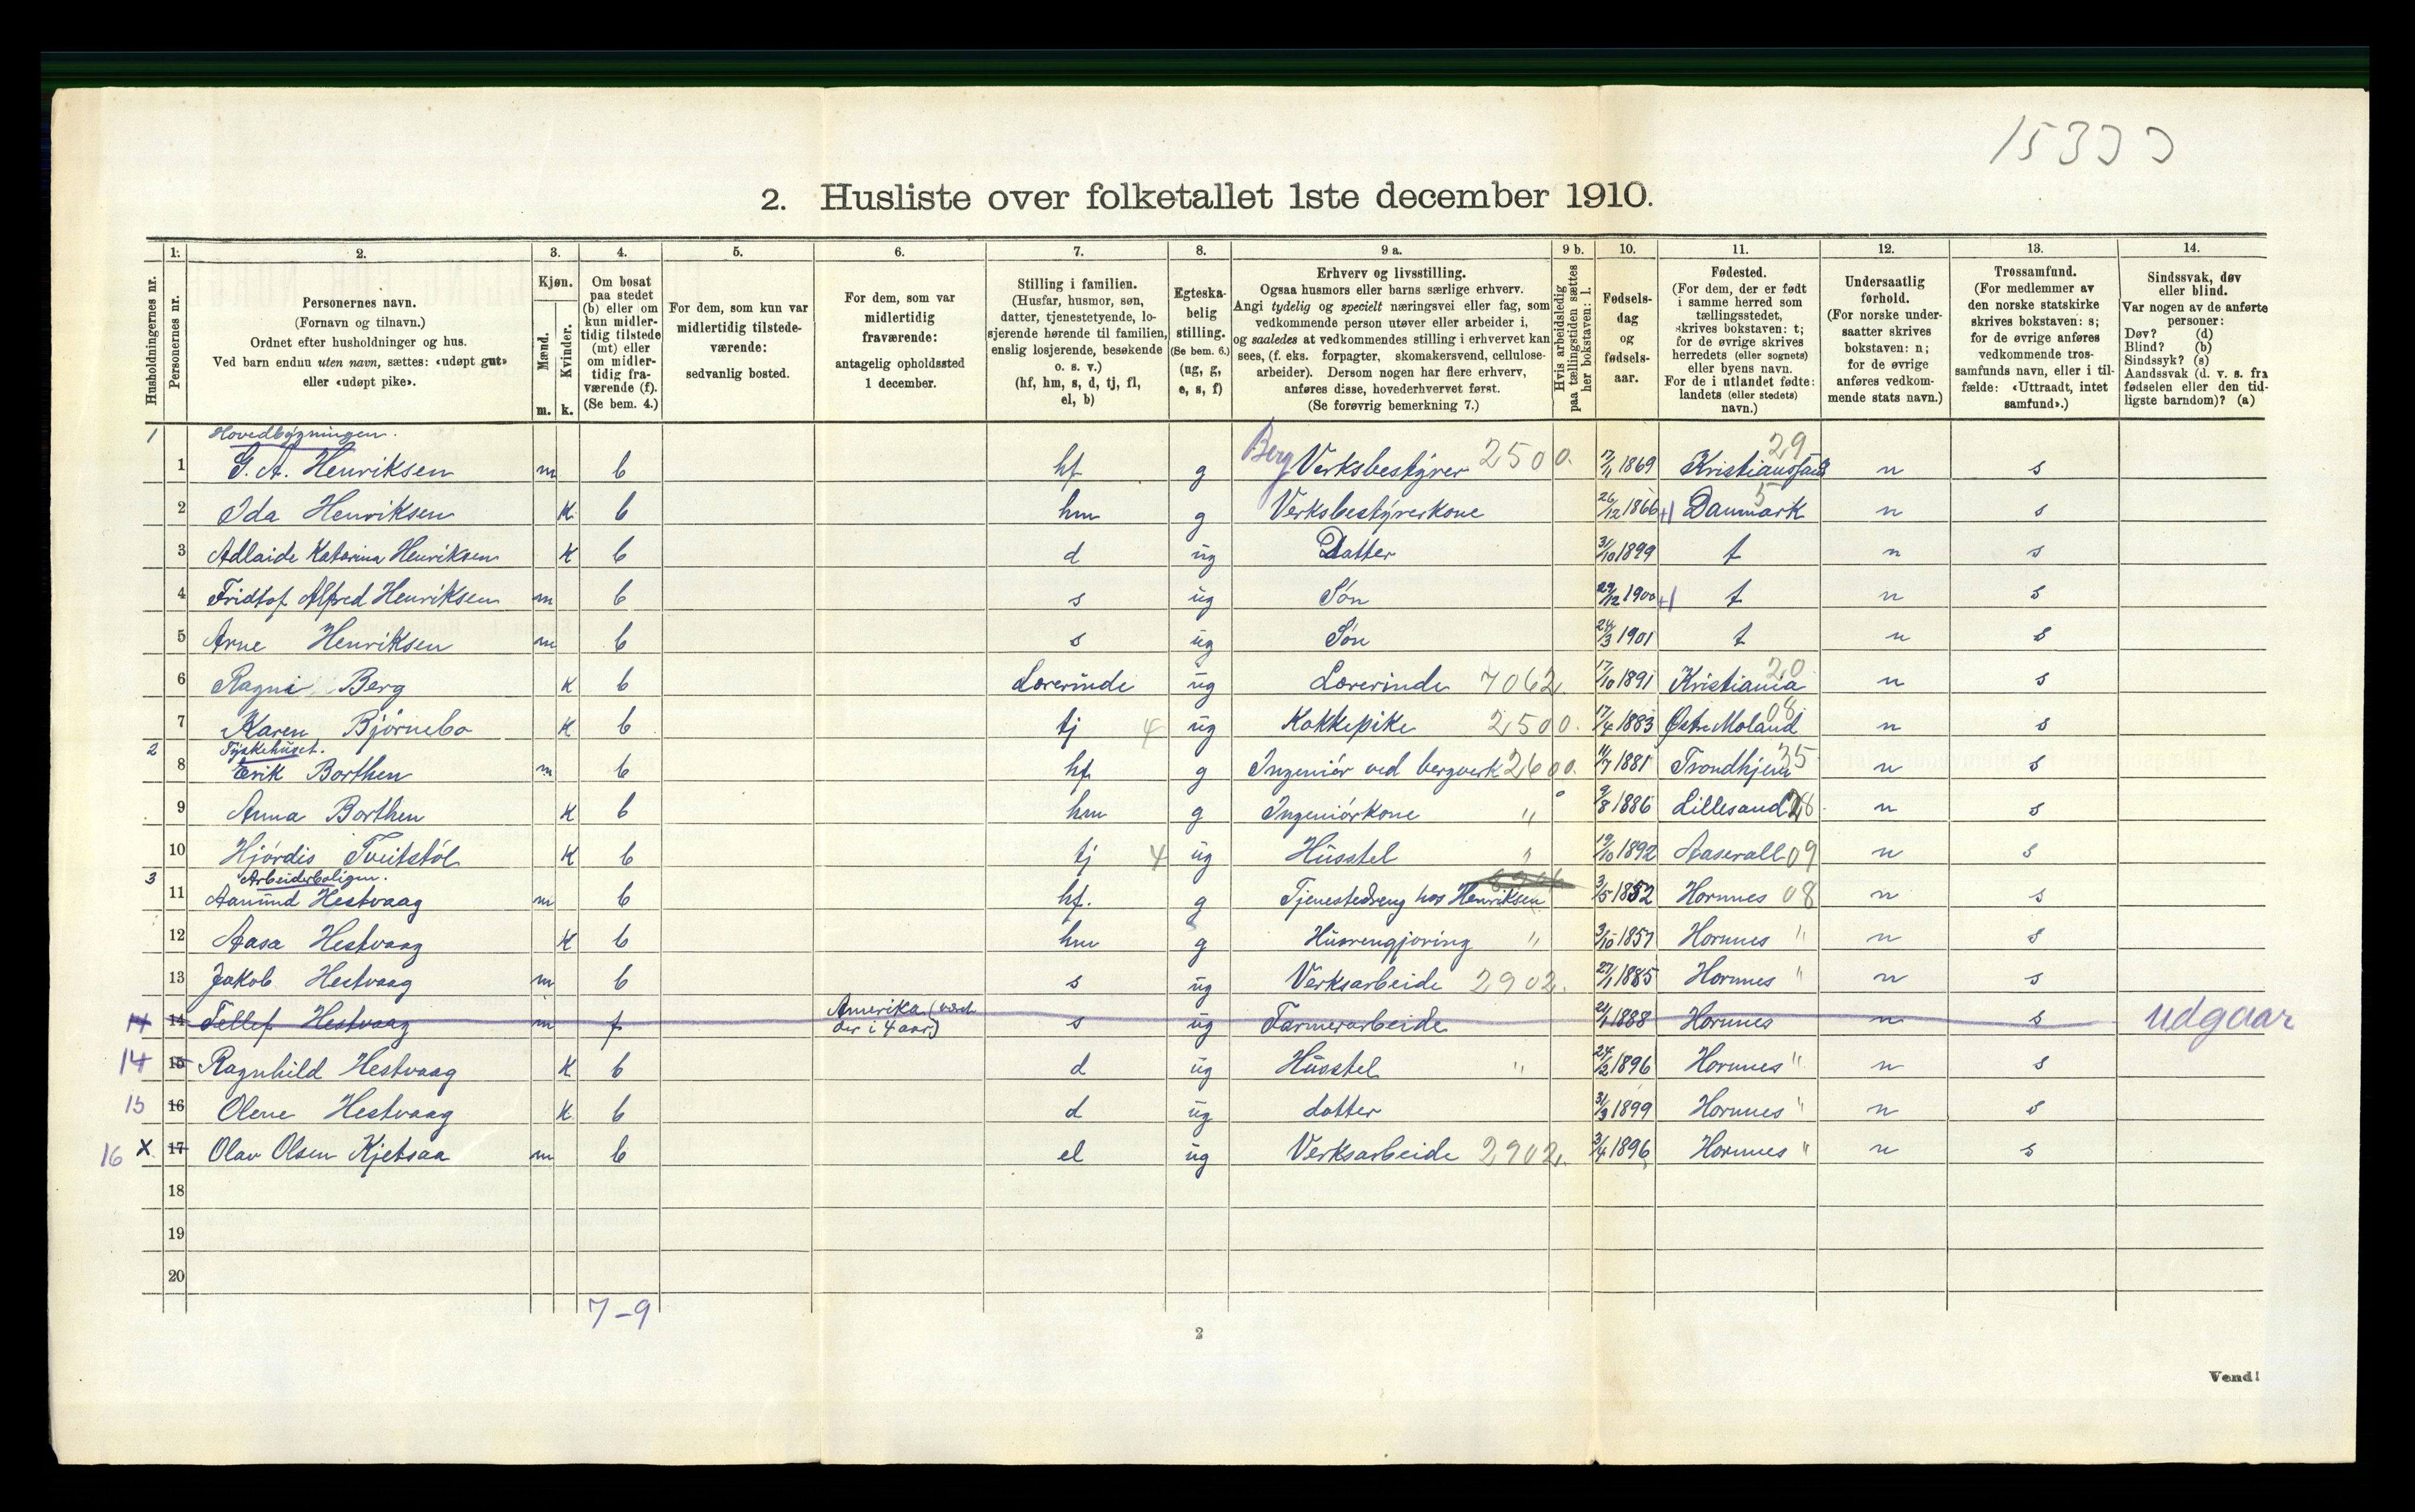 15333
2. Husliste over folketallet 1ste december 1910.
Husholdningernes nr.
1. Personernes nr.
2. Personernes navn.
(Fornavn og tilnavn.)
Ordnet efter husholdninger og hus.
Ved barn endnu uten navn, sættes: «udøpt gut»
eller «udøpt pike».
3. Kjøn.
Mænd. m.
Kvinder. k.
4. Om bosat
paa stedet
(b) eller om
kun midler-
tidig tilstede
(mt) eller
om midler-
tidig fra-
værende (f).
(Se bem. 4.)
5. For dem, som kun var
midlertidig tilstede-
værende:
sedvanlig bosted.
6. For dem, som var
midlertidig
fraværende:
antagelig opholdssted
1 december.
7. Stilling i familien.
(Husfar, husmor, søn,
datter, tjenestetyende, lo-
sjerende hørende til familien,
enslig losjerende, besøkende
o. s. v.)
(hf, hm, s, d, tj, fl,
el, b)
8. Egteska-
belig
stilling.
(Se bem. 6.)
(ug, g,
e, s, f)
9 a. Erhverv og livsstilling.
Ogsaa husmors eller barns særlige erhverv.
Angi tydelig og specielt næringsvei eller fag, som
vedkommende person utøver eller arbeider i,
og saaledes at vedkommendes stilling i erhvervet kan
sees, (f. eks. forpagter, skomakersvend, cellulose-
arbeider). Dersom nogen har flere erhverv,
anføres disse, hovederhvervet først.
(Se forøvrig bemerkning 7.)
9 b. Hvis arbeidsledig
paa tællingstiden sættes
her bokstaven: l.
10. Fødsels-
dag
og
fødsels-
aar.
11. Fødested.
(For dem, der er født
i samme herred som
tællingsstedet,
skrives bokstaven: t;
for de øvrige skrives
herredets (eller sognets)
eller byens navn.
For de i utlandet fødte:
landets (eller stedets)
navn.)
12. Undersaatlig
forhold.
(For norske under-
saatter skrives
bokstaven: n;
for de øvrige
anføres vedkom-
mende stats navn.)
13. Trossamfund.
(For medlemmer av
den norske statskirke
skrives bokstaven: s;
for de øvrige anføres
vedkommende tros-
samfunds navn, eller i til-
fælde: «Uttraadt, intet
samfund».)
14. Sindssvak, døv
eller blind.
Var nogen av de anførte
personer:
Døv? (d)
Blind? (b)
Sindssyk? (s)
Aandssvak (d. v. s. fra
fødselen eller den tid-
ligste barndom)? (a)
1 Hovedbygningen.
1 G. A. Henriksen m b hf g Berg Verksbestyrer 2500. 17/11 1869 Kristianssand 29 n s
2 Ida Henriksen K b hm g Verksbestyrerkone 26/12 1866 +1 Danmark 5 n s
3 Adlaide Katarina Henriksen K b d ug Datter 31/10 1899 t n s
4 Fridtof Alfred Henriksen m b s ug Søn 29/12 1900 +1 t n s
5 Arne Henriksen m b s ug Søn 24/3 1901 t n s
6 Ragni Berg K b Lærerinde ug Lærerinde 7062. 17/10 1891 Kristiania 20 n s
7 Karen Bjørnebo K b tj 4 ug Kokkepike 2500. 17/4 1883 Østre Moland 08 n s
2 Tyskehuset.
8 Erik Borthen m b hf g Ingeniør ved bergverk 2600. 11/7 1881 Trondhjem 35 n s
9 Anna Borthen K b hm g Ingeniørkone " 9/8 1886 Lillesand 28 n s
10 Hjørdis Tveitstøl K b tj 4 ug Husstel " 19/10 1892 Aaserall 09 n s
3 Arbeiderboligen.
11 Aanund Hestvaag m b hf. g Tjenestedreng hos Henriksen 3/5 1852 Hornnes 08 n s
12 Aasa Hestvaag K b hm g Husrengjøring " 3/10 1857 Hornnes " n s
13 Jakob Hestvaag m b s ug Verksarbeide 2902. 27/1 1885 Hornnes " n s
14 14 Tellef Hestvaag m f Amerika (vært
der i 4 aar) s ug Farmerarbeide 21/1 1888 Hornnes n s udgaar
14 15 Ragnhild Hestvaag K b d ug Husstel " 24/2 1896 Hornnes " n s
15 16 Olene Hestvaag K b d ug datter 31/3 1899 Hornnes " n s
16 X 17 Olav Olsen Kjetsaa m b el ug Verksarbeide 2902. 3/4 1896 Hornnes " n s
18
19
20
7-9
2
Vend!